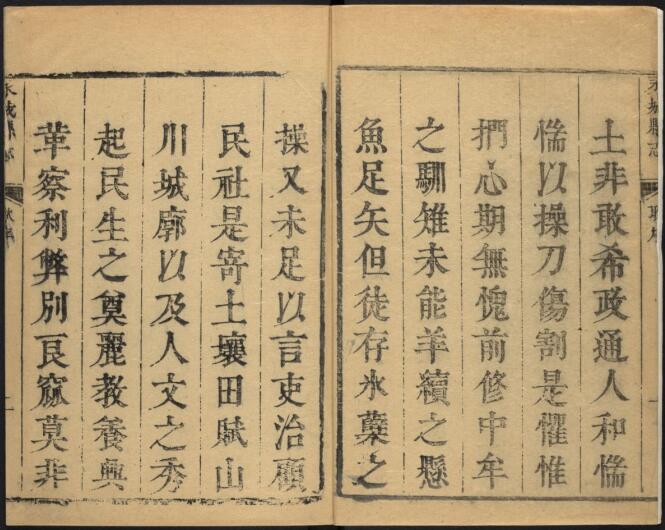 土非敢希政通人和惴
惴以操刀傷割是懼惟
捫心期無愧前修中牟
之馴雉未能羊續之懸
魚足矣但徒存氷蘗之
操又未足以言吏治顧
民社是寄土壤田賦山
川城廓以及人文之秀
起民生之奠麗教養興
革察利弊別艮窳莫非
永城縣志